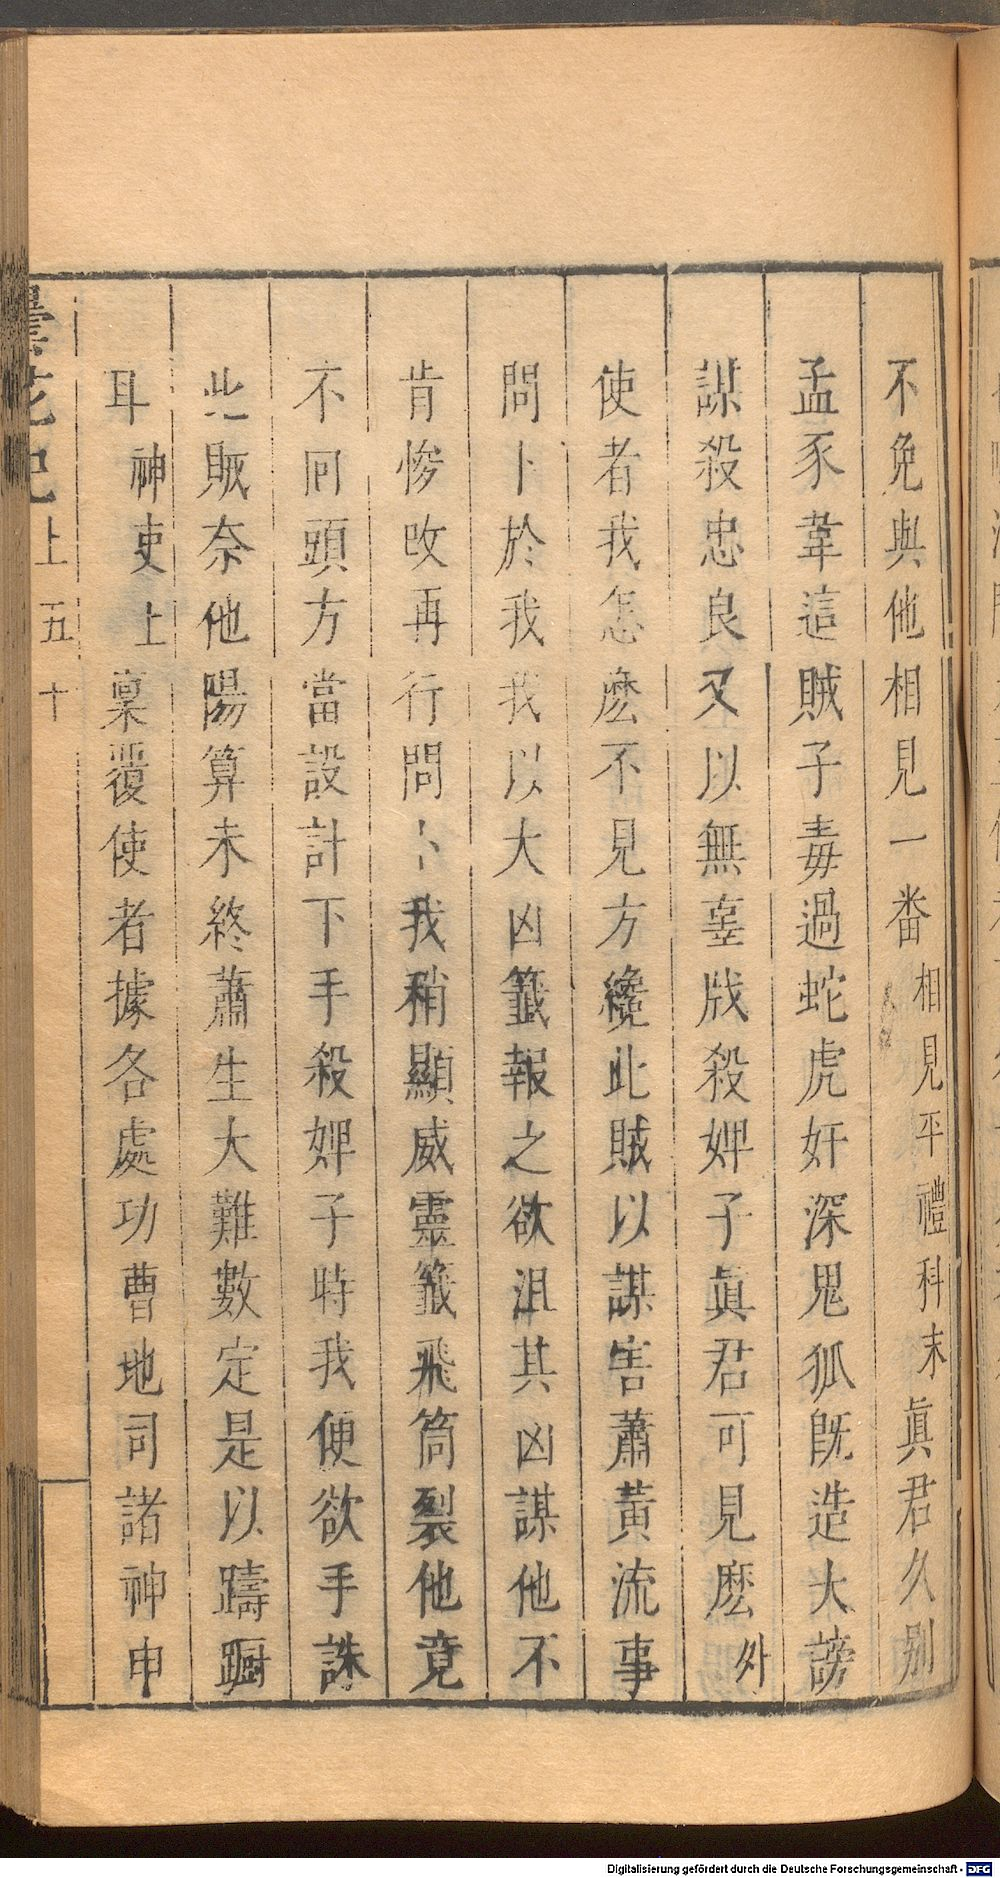 不免與他相見一番相見平禮科末眞君久別
孟豕韋這賊子毒過蛇虎奸深鬼狐旣造大謗
謀殺忠良又以無辜戕殺婢子眞君可見麽外
使者我怎麽不見方纔此賊以謀害蕭黃流事
問卜於我我以大凶籤報之欲沮其凶謀他不
肯悛改再行問卜我稍顯威靈籤飛筒裂他竟
不回頭方當設計下手殺婢子時我便欲手誅
此賊奈他陽算未終蕭生大難數定是以躊躕
耳神吏上稟覆使者據各處功曹地司諸神申
曇花記 上 五十
Digitalisierung gefördert durch die Deutsche Forschungsgemeinschaft - DFG